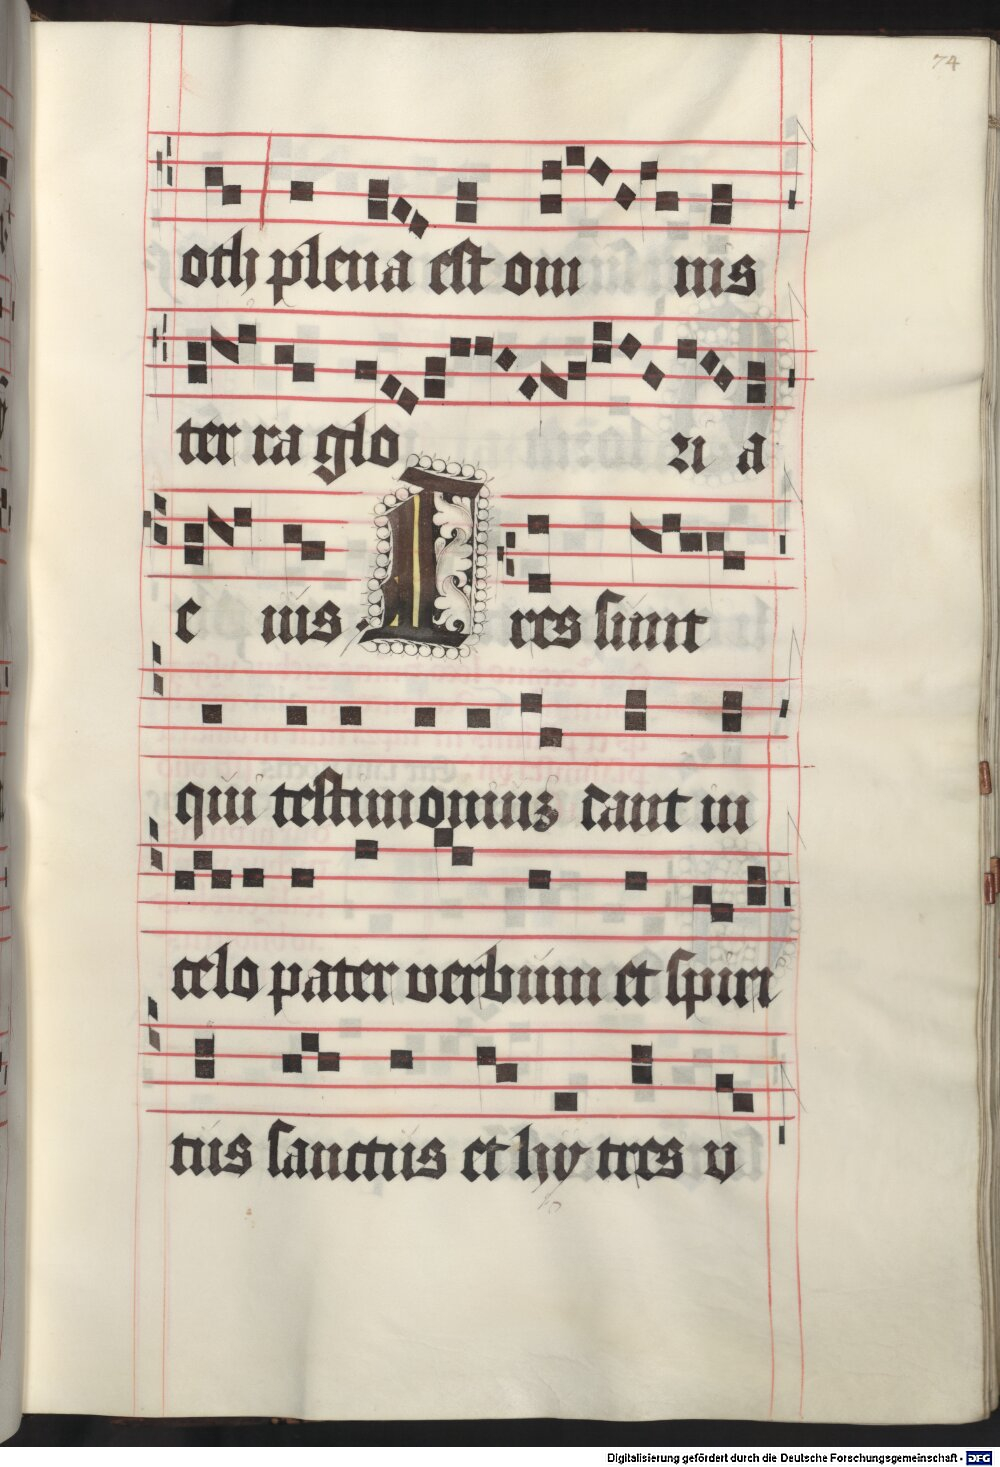 74
oth plena est om nis
ter ra glo ri a
e ius . T res sunt
qui testimoniuʒ dant in
celo pater verbum et spiri
tus sanctus et hy tres v
Digitalisierung gefördert durch die Deutsche Forschungsgemeinschaft - DFG